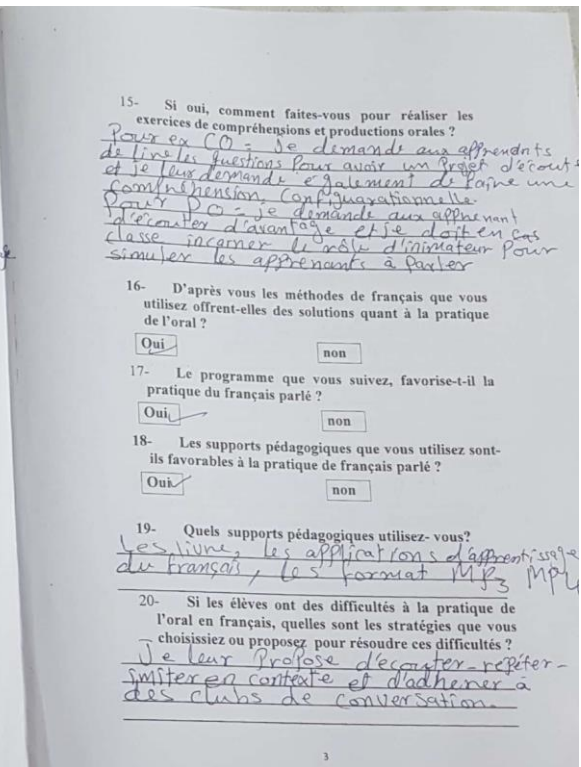 15- Si oui, comment faites-vous pour réaliser les
exercices de compréhensions et productions orales ?
Pour ex CO = Je demande aux apprenants
de lire les questions Pour avoir un Projet d'écoute
et je leur demande également de faire une
Compréhension Configurationnelle.
Pour PO = je demande aux apprenant
d'écouter d'avantage et je doit en cas
classe incarner le rôle d'inimateur Pour
simuler les apprenants à Parler
16- D'après vous les méthodes de français que vous
utilisez offrent-elles des solutions quant à la pratique
de l'oral ?
Oui non
17- Le programme que vous suivez, favorise-t-il la
pratique du français parlé ?
Oui non
18- Les supports pédagogiques que vous utilisez sont-
ils favorables à la pratique de français parlé ?
Oui non
19- Quels supports pédagogiques utilisez- vous?
Les livre, les applications d'apprentissage
du français, les format MP3 MP4
20- Si les élèves ont des difficultés à la pratique de
l'oral en français, quelles sont les stratégies que vous
choisissiez ou proposez pour résoudre ces difficultés ?
Je leur Propose d'écouter-répéter-
imiter en contexte et d'adherer à
des clubs de conversation.
3